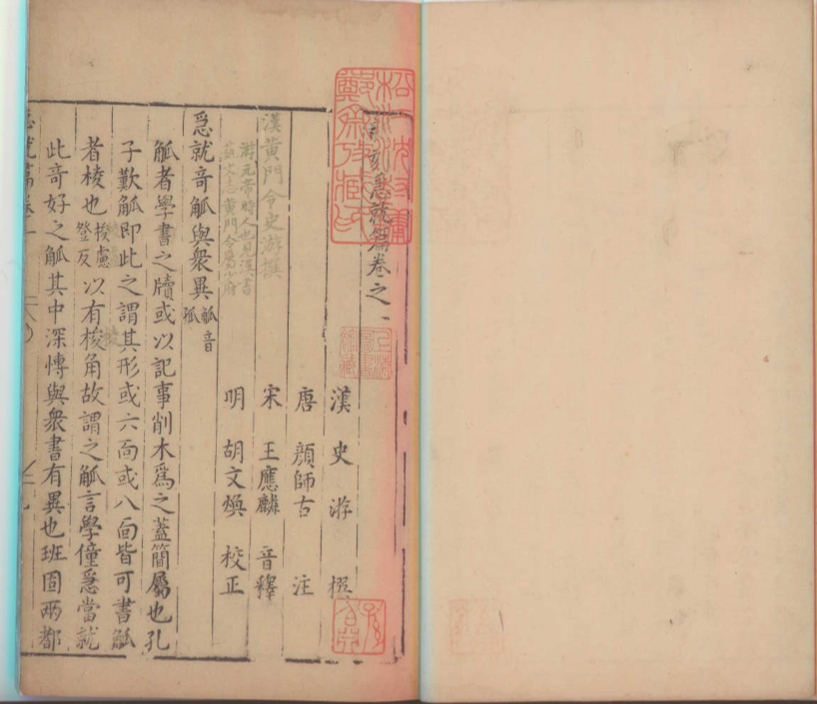 新刻急就篇卷之一
漢 史 游 撰
唐 顏師古 注
宋 王應麟 音釋
明 胡文煥 校正
漢黃門令史游撰
游元帝時人也見漢書
藝文志黃門令屬少府
急就奇觚與衆異觚音孤
觚者學書之牘或以記事削木爲之蓋簡屬也孔
子歎觚即此之謂其形或六靣或八靣皆可書觚
者棱也棱慮登反以有棱角故謂之觚言學僮急當就
此奇好之觚其中深慱與衆書有異也班固兩都
急就篇卷一